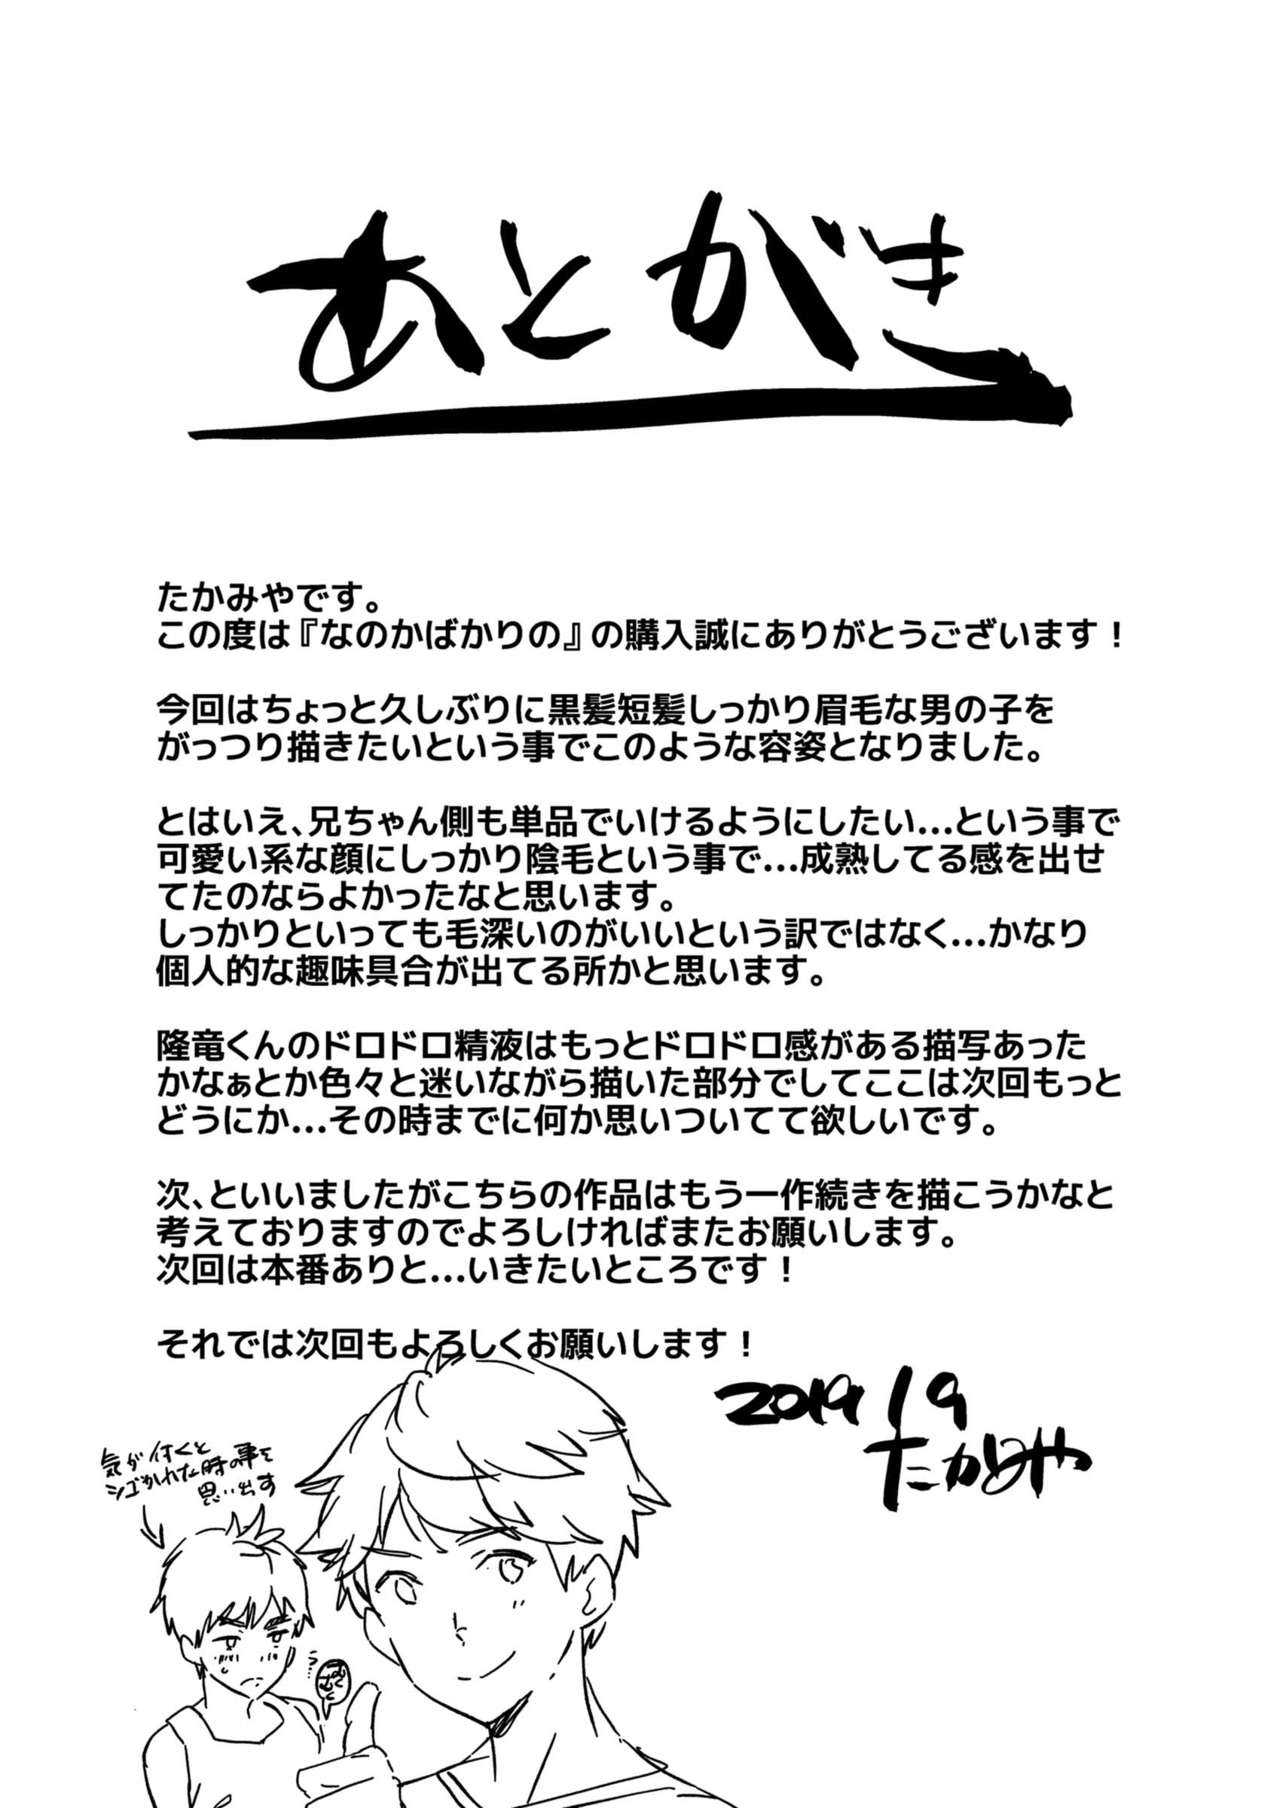 あとがき
たかみやです。
この度は『なのかばかりの』の購入誠にありがとうございます！
今回はちょっと久しぶりに黒髪短髪しっかり眉毛な男の子を
がっつり描きたいという事でこのような容姿となりました。
とはいえ、兄ちゃん側も単品でいけるようにしたい…という事で
可愛い系な顔にしっかり陰毛という事で…成熟してる感を出せ
てたのならよかったなと思います。
しっかりといっても毛深いのがいいという訳ではなく…かなり
個人的な趣味具合が出てる所かと思います。
隆竜くんのドロドロ精液はもっとドロドロ感がある描写あった
かなぁとか色々と迷いながら描いた部分でしてここは次回もっと
どうにか…その時までに何か思いついてて欲しいです。
次、といいましたがこちらの作品はもう一作続きを描こうかなと
考えておりますのでよろしければまたお願いします。
次回は本番ありと…いきたいところです！
それでは次回もよろしくお願いします！
2019 / 9
たかみや
気が付くと
シゴかれた時の事を
思い出す